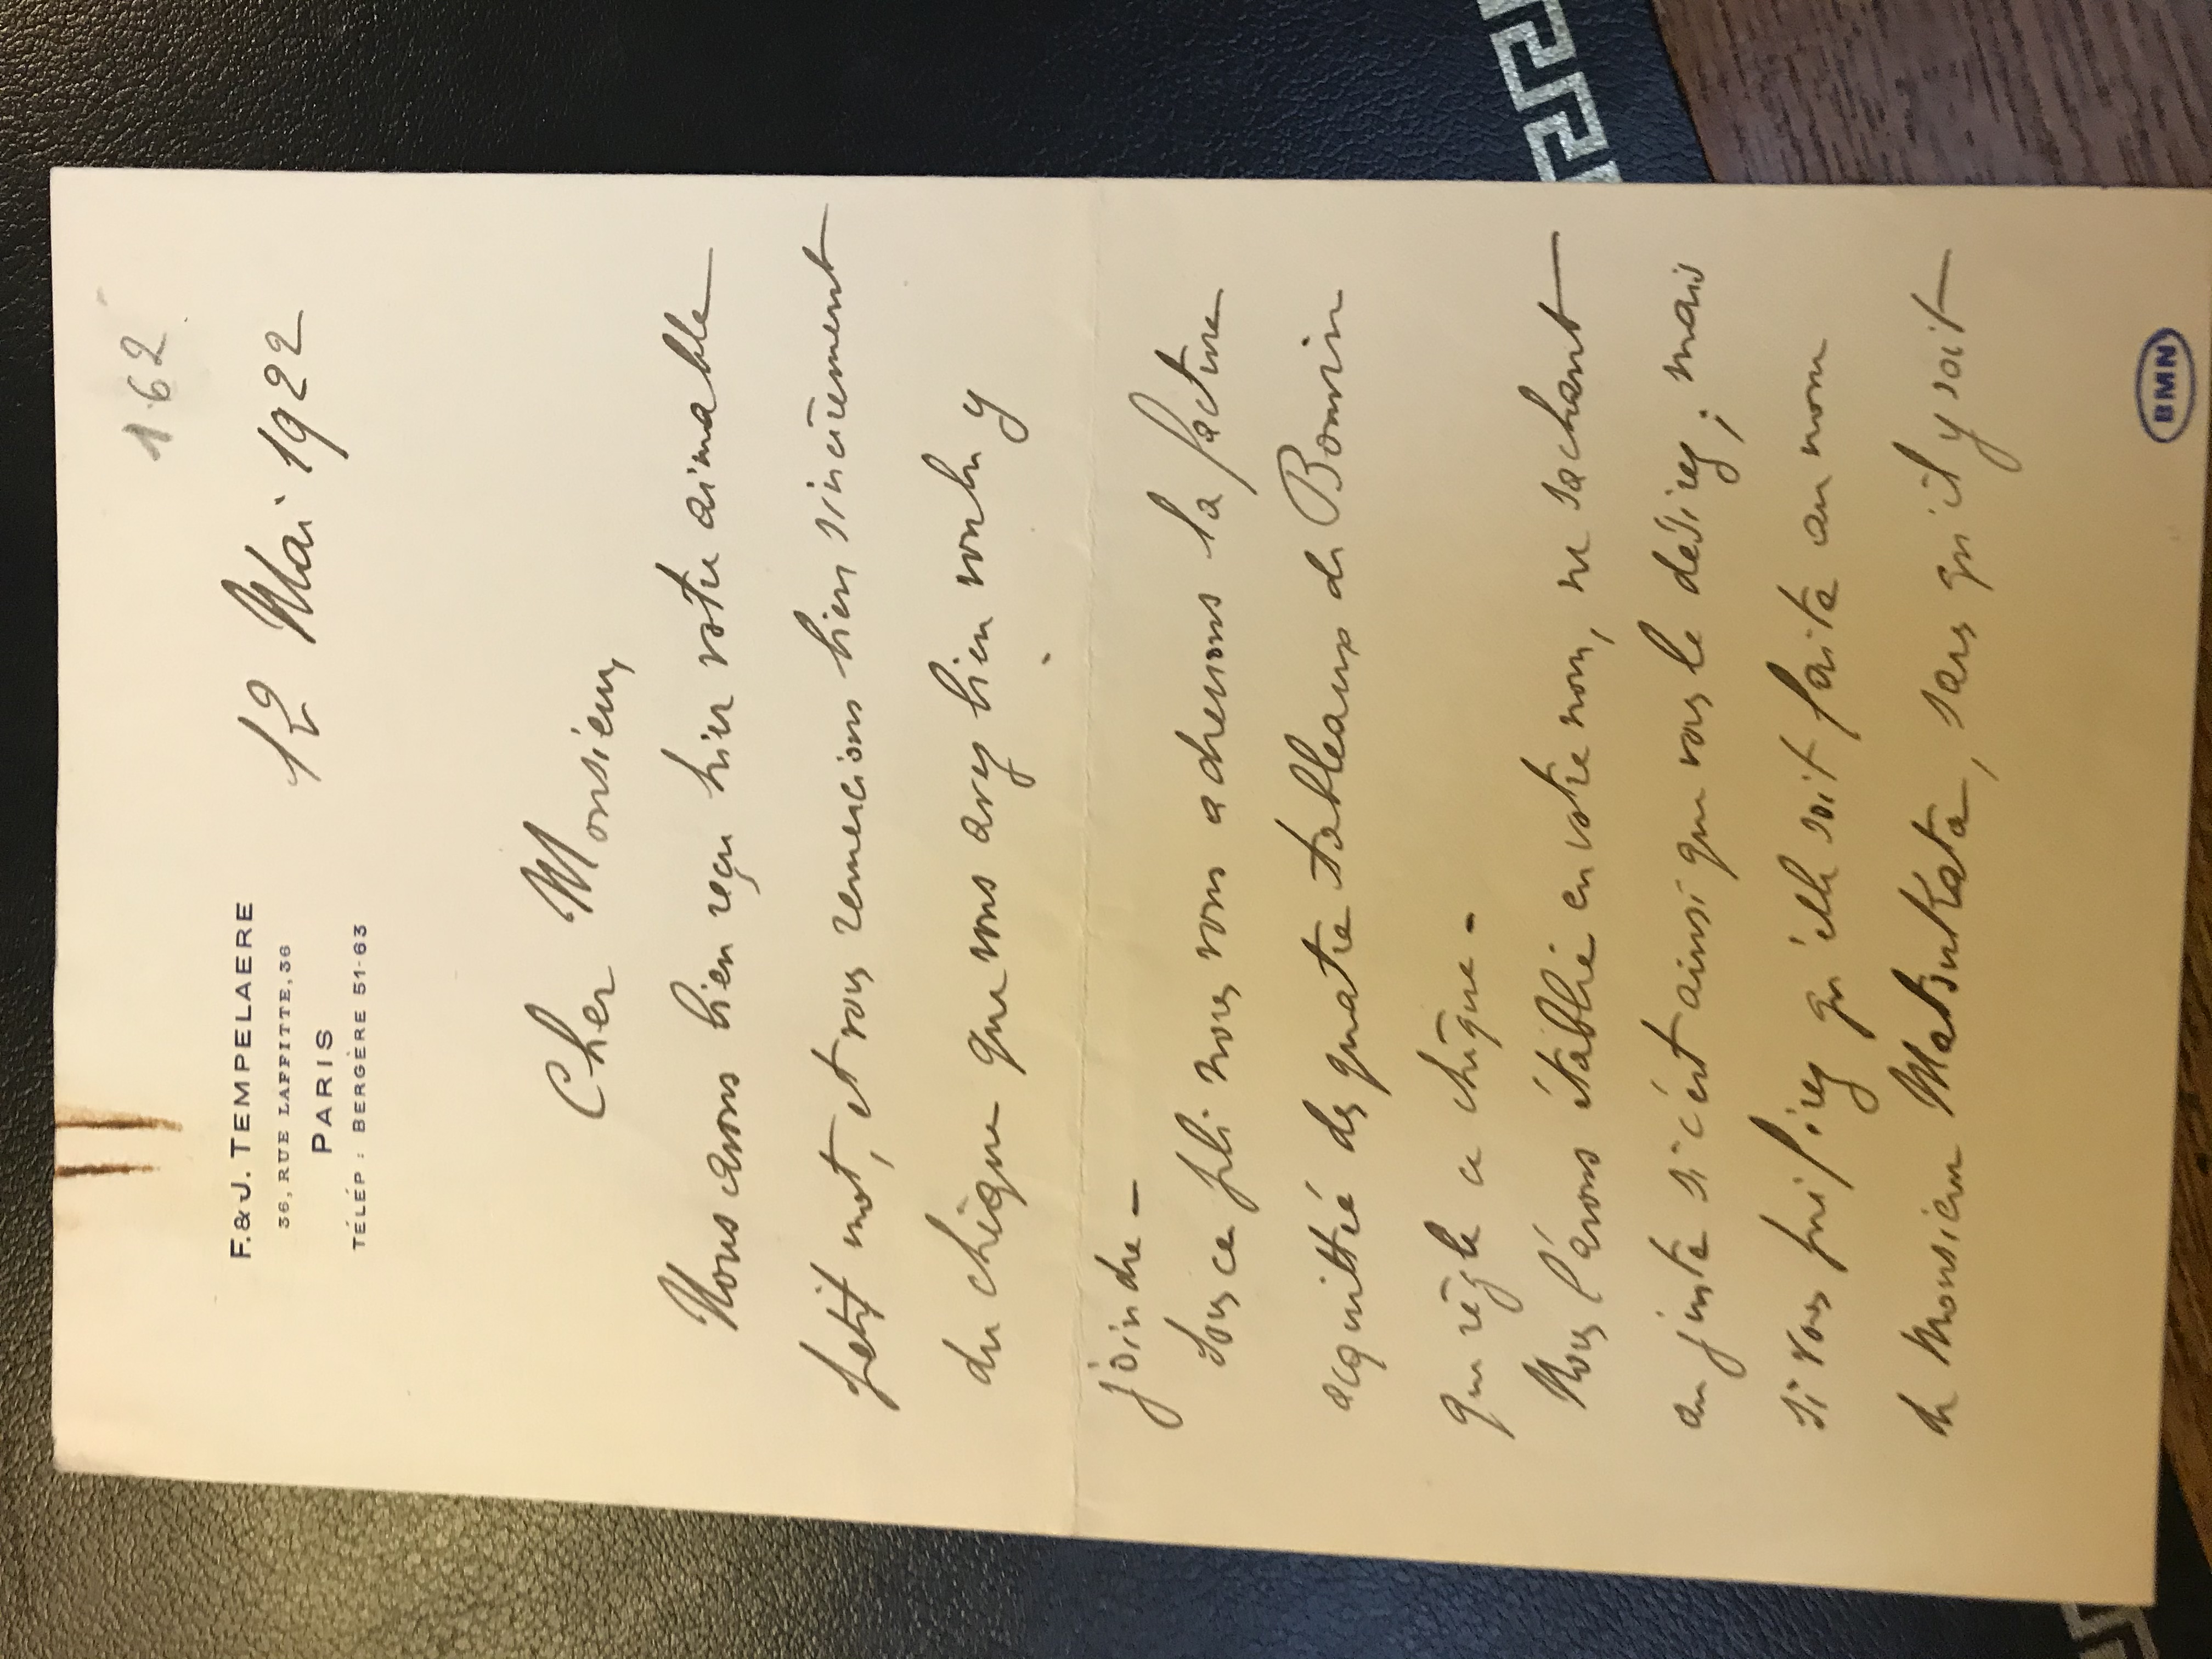 162
F. & J. TEMPELAERE
36, RUE LAFFITTE, 36
PARIS
TÉLÉP : BERGÈRE 51-63
12 Mai 1922
Cher Monsieur,
Nous avons bien reçu hier votre aimable
petit mot, et vous remercions bien sincèrement
du chèque que vous avez bien voulu y
joindre -
Sous ce pli nous vous adressons la facture
acquittée des quatre tableaux de Bonvin
que règle ce chèque -
Nous l'avons établie en votre nom, ne sachant
au juste si c'est ainsi que vous le désirez; mais
si vous préfériez qu'elle soit faite au nom
de Monsieur Matsukata, sans qu'il y soit
BMN